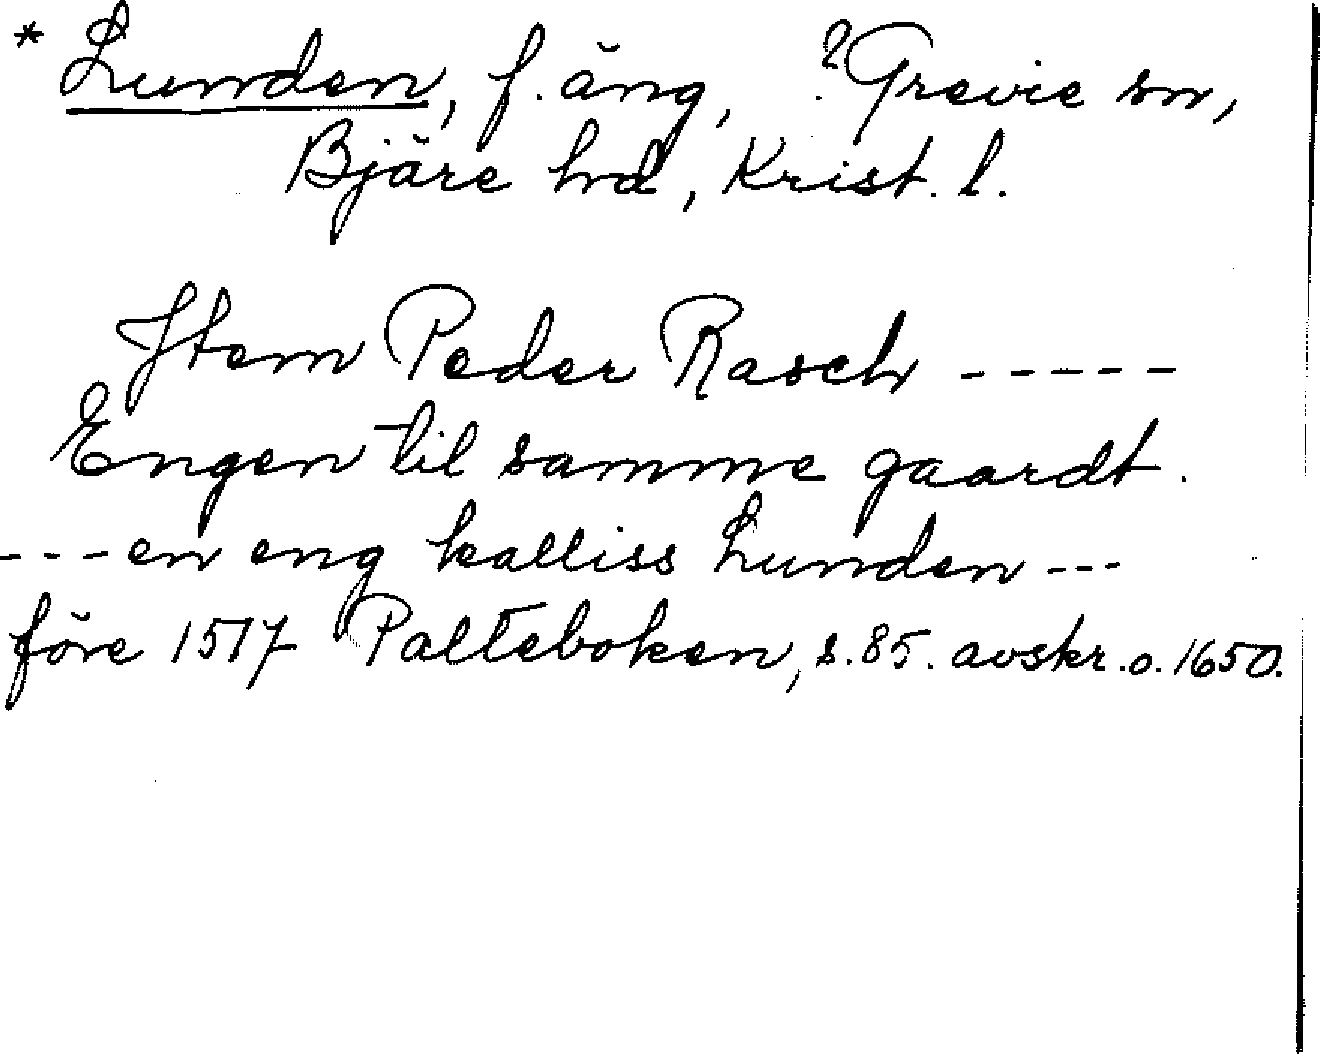 * Lunden, f. äng, ? Grevie sn,
Bjäre hd, Krist. l.
Item Peder Rasch -----
Engen til samme gaardt.
--- en eng kalliss Lunden ---
före 1517 Palteboken, s. 85. avskr. o. 1650.